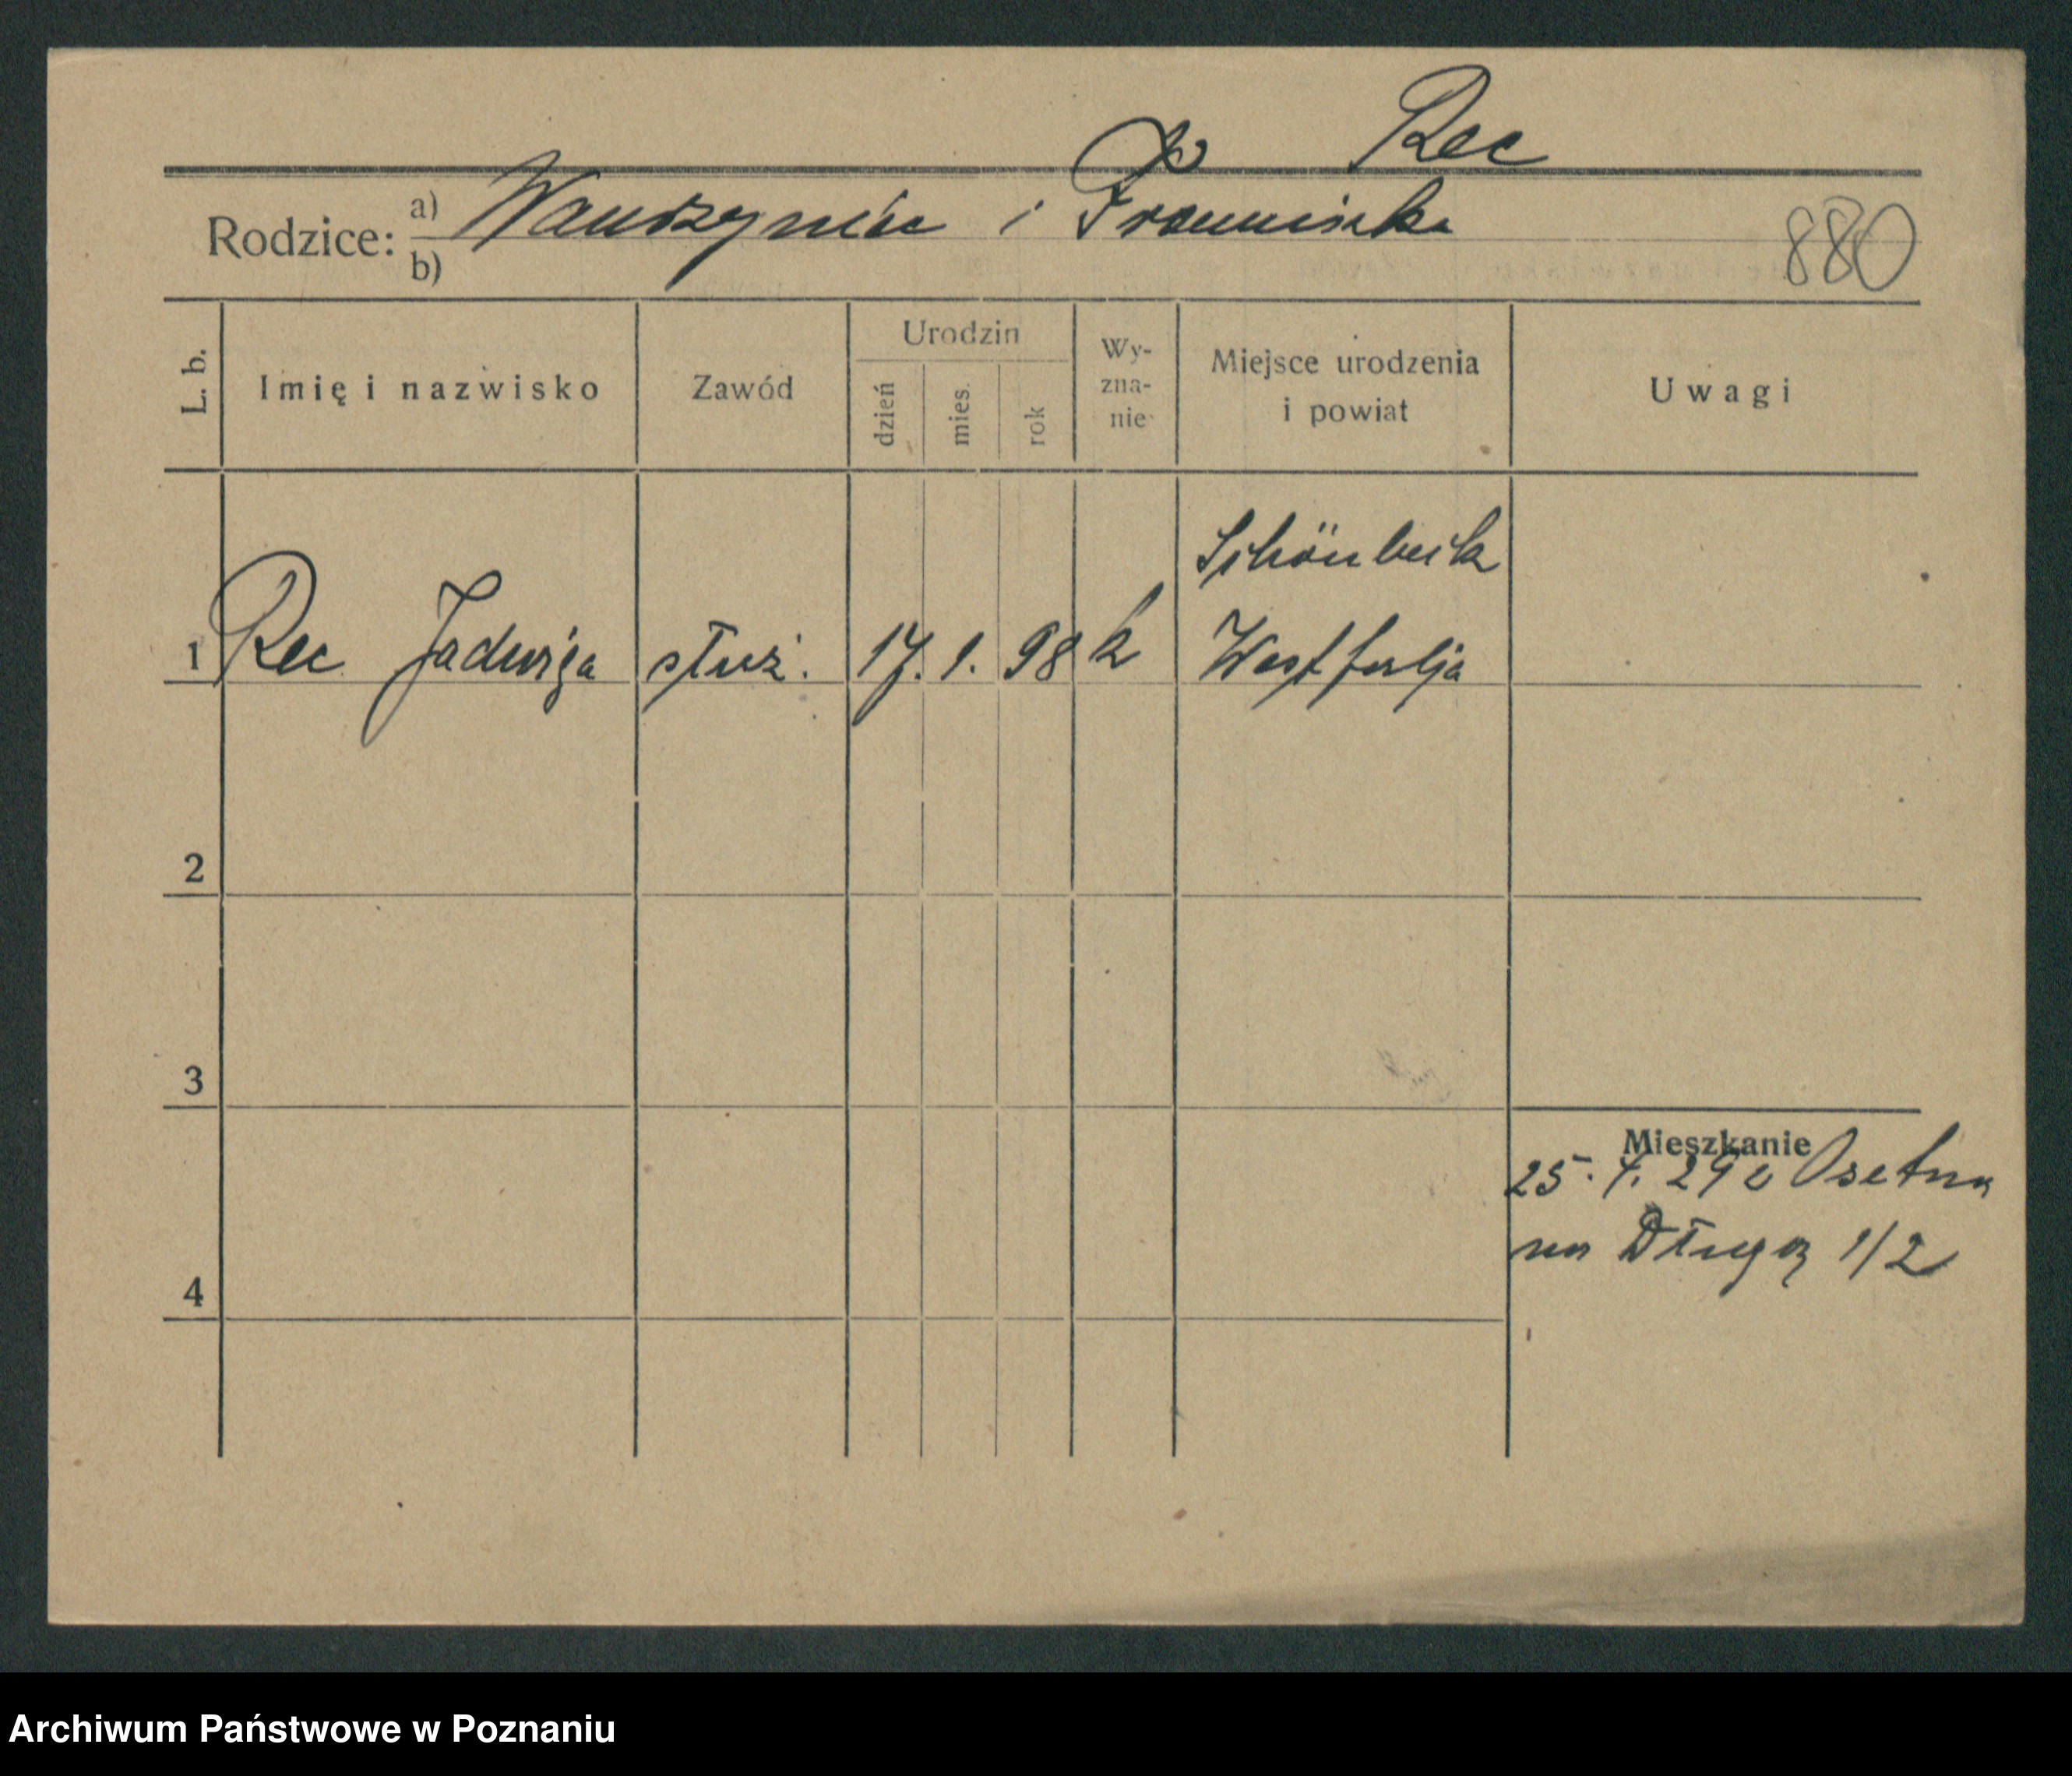 Rec
Rodzice: a) Wawrzyniec i Franciszka
b)
880
L. b.
Imię i nazwisko
Zawód
Urodzin
dzień
mies.
rok
Wy-
zna-
nie
Miejsce urodzenia
i powiat
Uwagi
Schönbeck
1 Rec Jadwiga służ. 17. 1. 98 k Westfalja
2
3
Mieszkanie
25. 4. 29 z Osetna
na Długą 1/2
4
Archiwum Państwowe w Poznaniu